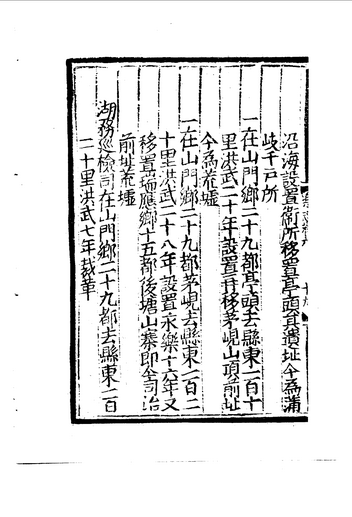 沿海設置衛所移置亭頭其遺址今為蒲
岐千戶所
一在山門鄉二十九都亭頭去縣東一百十
里洪武二十年設置并移茅峴山項前址
今為荒墟
一在山門鄉二十九都茅峴去縣東一百二
十里洪武二十八年設置永樂十六年又
移置瑞應鄉十五都後塘山寨即今司治
前址荒墟
湖務巡檢司在山門鄉二十九都去縣東二百
二十里洪武七年裁革